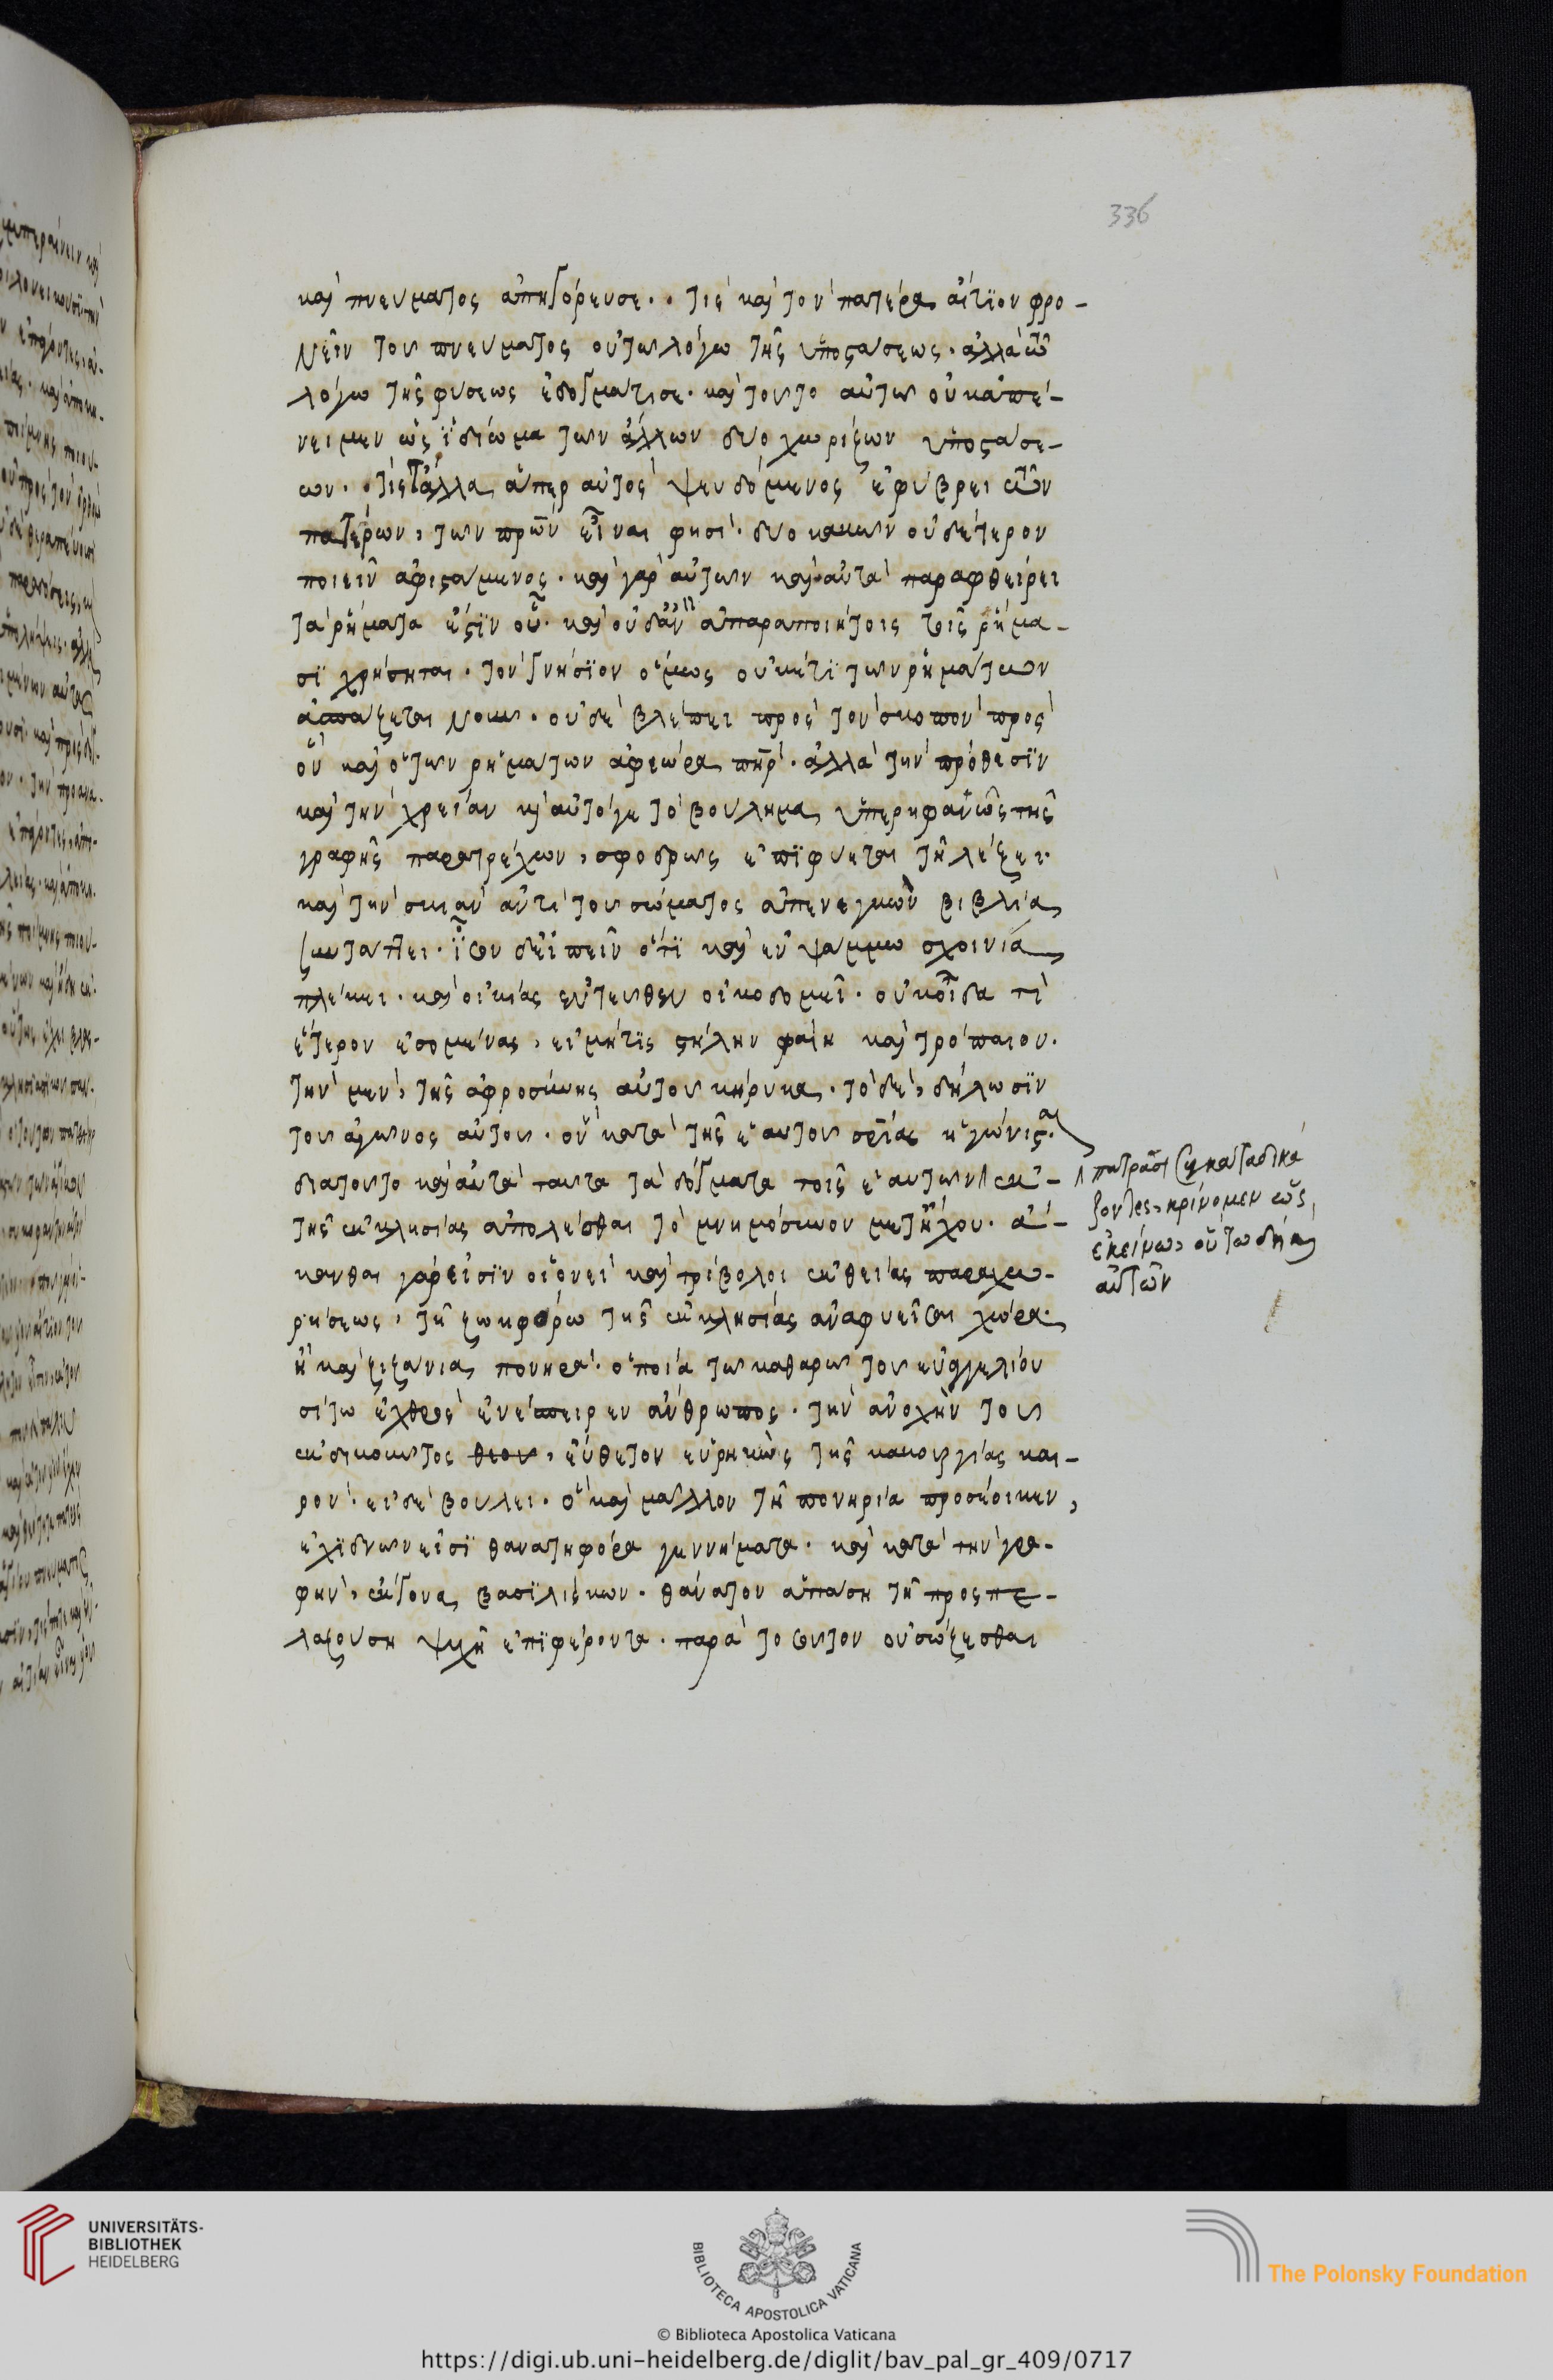 336
καὶ πνεύματος ἀπηγόρευσε. τί ἐ καὶ τὸν πατέρα αἴτϊον φρο-
νεῖν τοῦ πνεύματος οὐ τῶ λόγω τῆς ὑποστάσεως. ἀλλὰ τῶ
λόγω τῆς φύσεως ἐδογμάτισε. καὶ τοῦτο αὐτῶ οὐκ ἀπέ-
νειμεν ὡς ἰδίωμα τῶν ἄλλων δύο χωρίζων ὑποστάσε-
ων. τίς τἄλλα ἅπερ αὐτὸς ψευδόμενος ἐφυβρει τῶν
πατέρων, τῶν πρῶν εἶναι φησί. δύο κακῶν οὐδέτερον
ποιεῖν ἀφιστάμενος. καὶ γὰρ αὐτῶν καὶ αὐτὰ παραφθείρει
τὰ ῥήματα ἔστϊν οὗ. καὶ οὐδ' ἂν ἀπαραποιήτοις τοῖς ῥήμα-
σϊ χρήσηται. τὸν γνήσϊον ὅμως οὐκέτϊ τῶν ῥημάτων
ἀσπάζεται νοῦν. οὐδὲ βλέπει πρὸς τὸν σκοπὸν πρὸς
ὃν καὶ ὁ τῶν ῥημάτων ἀφεώρα πηρ. ἀλλὰ τὴν πρόθεσϊν
καὶ τὴν χρείαν κỳ αὐτό γε τὸ βούλημα ὑπερηφάνως τῆς
γραφῆς παρατρέχων, σφοδρῶς ἐπϊφύεται τῆ λέξει.
καὶ τὴν σκιὰν ἀντὶ τοῦ σώματος ἀπενεγκὼν βιβλία
συντάττει. ἴσον δ' εἰπεῖν ὅτϊ καὶ ἐν ψάμμω σχοινία
πλέκει. καὶ οἰκίας ἐντεῦθεν οἰκοδομεῖ. οὐκ οἶδα τὶ
ἕτερον ἐσομένας, εἰ μήτις στήλην φαίη καὶ τρόπαιον.
τὴν μὲν, τῆς ἀφροσύνης αὐτοῦ κήρυκα. τὸ δὲ, δήλωσϊν
τοῦ ἀγῶνος αὐτοῦ. ὃν κατὰ τῆς ἑαυτοῦ σρίας ἠγώνισται.
διατοῦτο καὶ αὐτὰ ταῦτα τὰ δόγματα τοῖς ἑαυτῶν ἐκ
τῆς ἐκκλησίας ἀπολέσθαι τὸ μνημόσυνον μετ' ἤχου. ἄ-
κανθαι γάρ εἰσϊν οἱονεὶ καὶ τρίβολοι ἐκ θείας παραχω-
ρήσεως, τῆ ζωηφόρω τῆς ἐκκλησίας ἀναφυεῖσαι χώρα
ἢ καὶ ζιζάνια πονηρά. ὁποῖα τῶ καθαρῶ τοῦ εὐαγγελίου
σίτω ἐχθρὸς ἐνέσπειρεν ἄνθρωπος. τὴν ἀνοχὴν τοῦ
ἐκδικοῦντος θεοῦ, εὔθετον εὑρηκὼς τῆς κακουργίας και-
ρόν. εἰ δὲ βούλει. ὃ καὶ μᾶλλον τῆ πονηρία προσέοικεν,
ἐχϊδνῶν εἰσϊ θανατηφόρα γεννήματα. καὶ κατὰ τὴν γρα-
φὴν, ἔκγονα βασϊλίσκων. θάνατον ἁπάση τῆ προςπε-
λαζούση ψυχῆ ἐπϊφέροντα. παρὰ τοσοῦτον οὐ σώζεσθαι
πατράσι συγκαταδικά
ζοντες, κρίνομεν ὡς
ἐκείνω, οὕτω δὴ καὶ
αὐτῶν
UNIVERSITÄTS-
BIBLIOTHEK
HEIDELBERG
BIBLIOTECA APOSTOLICA VATICANA
The Polonsky Foundation
© Biblioteca Apostolica Vaticana
https://digi.ub.uni-heidelberg.de/diglit/bav_pal_gr_409/0717